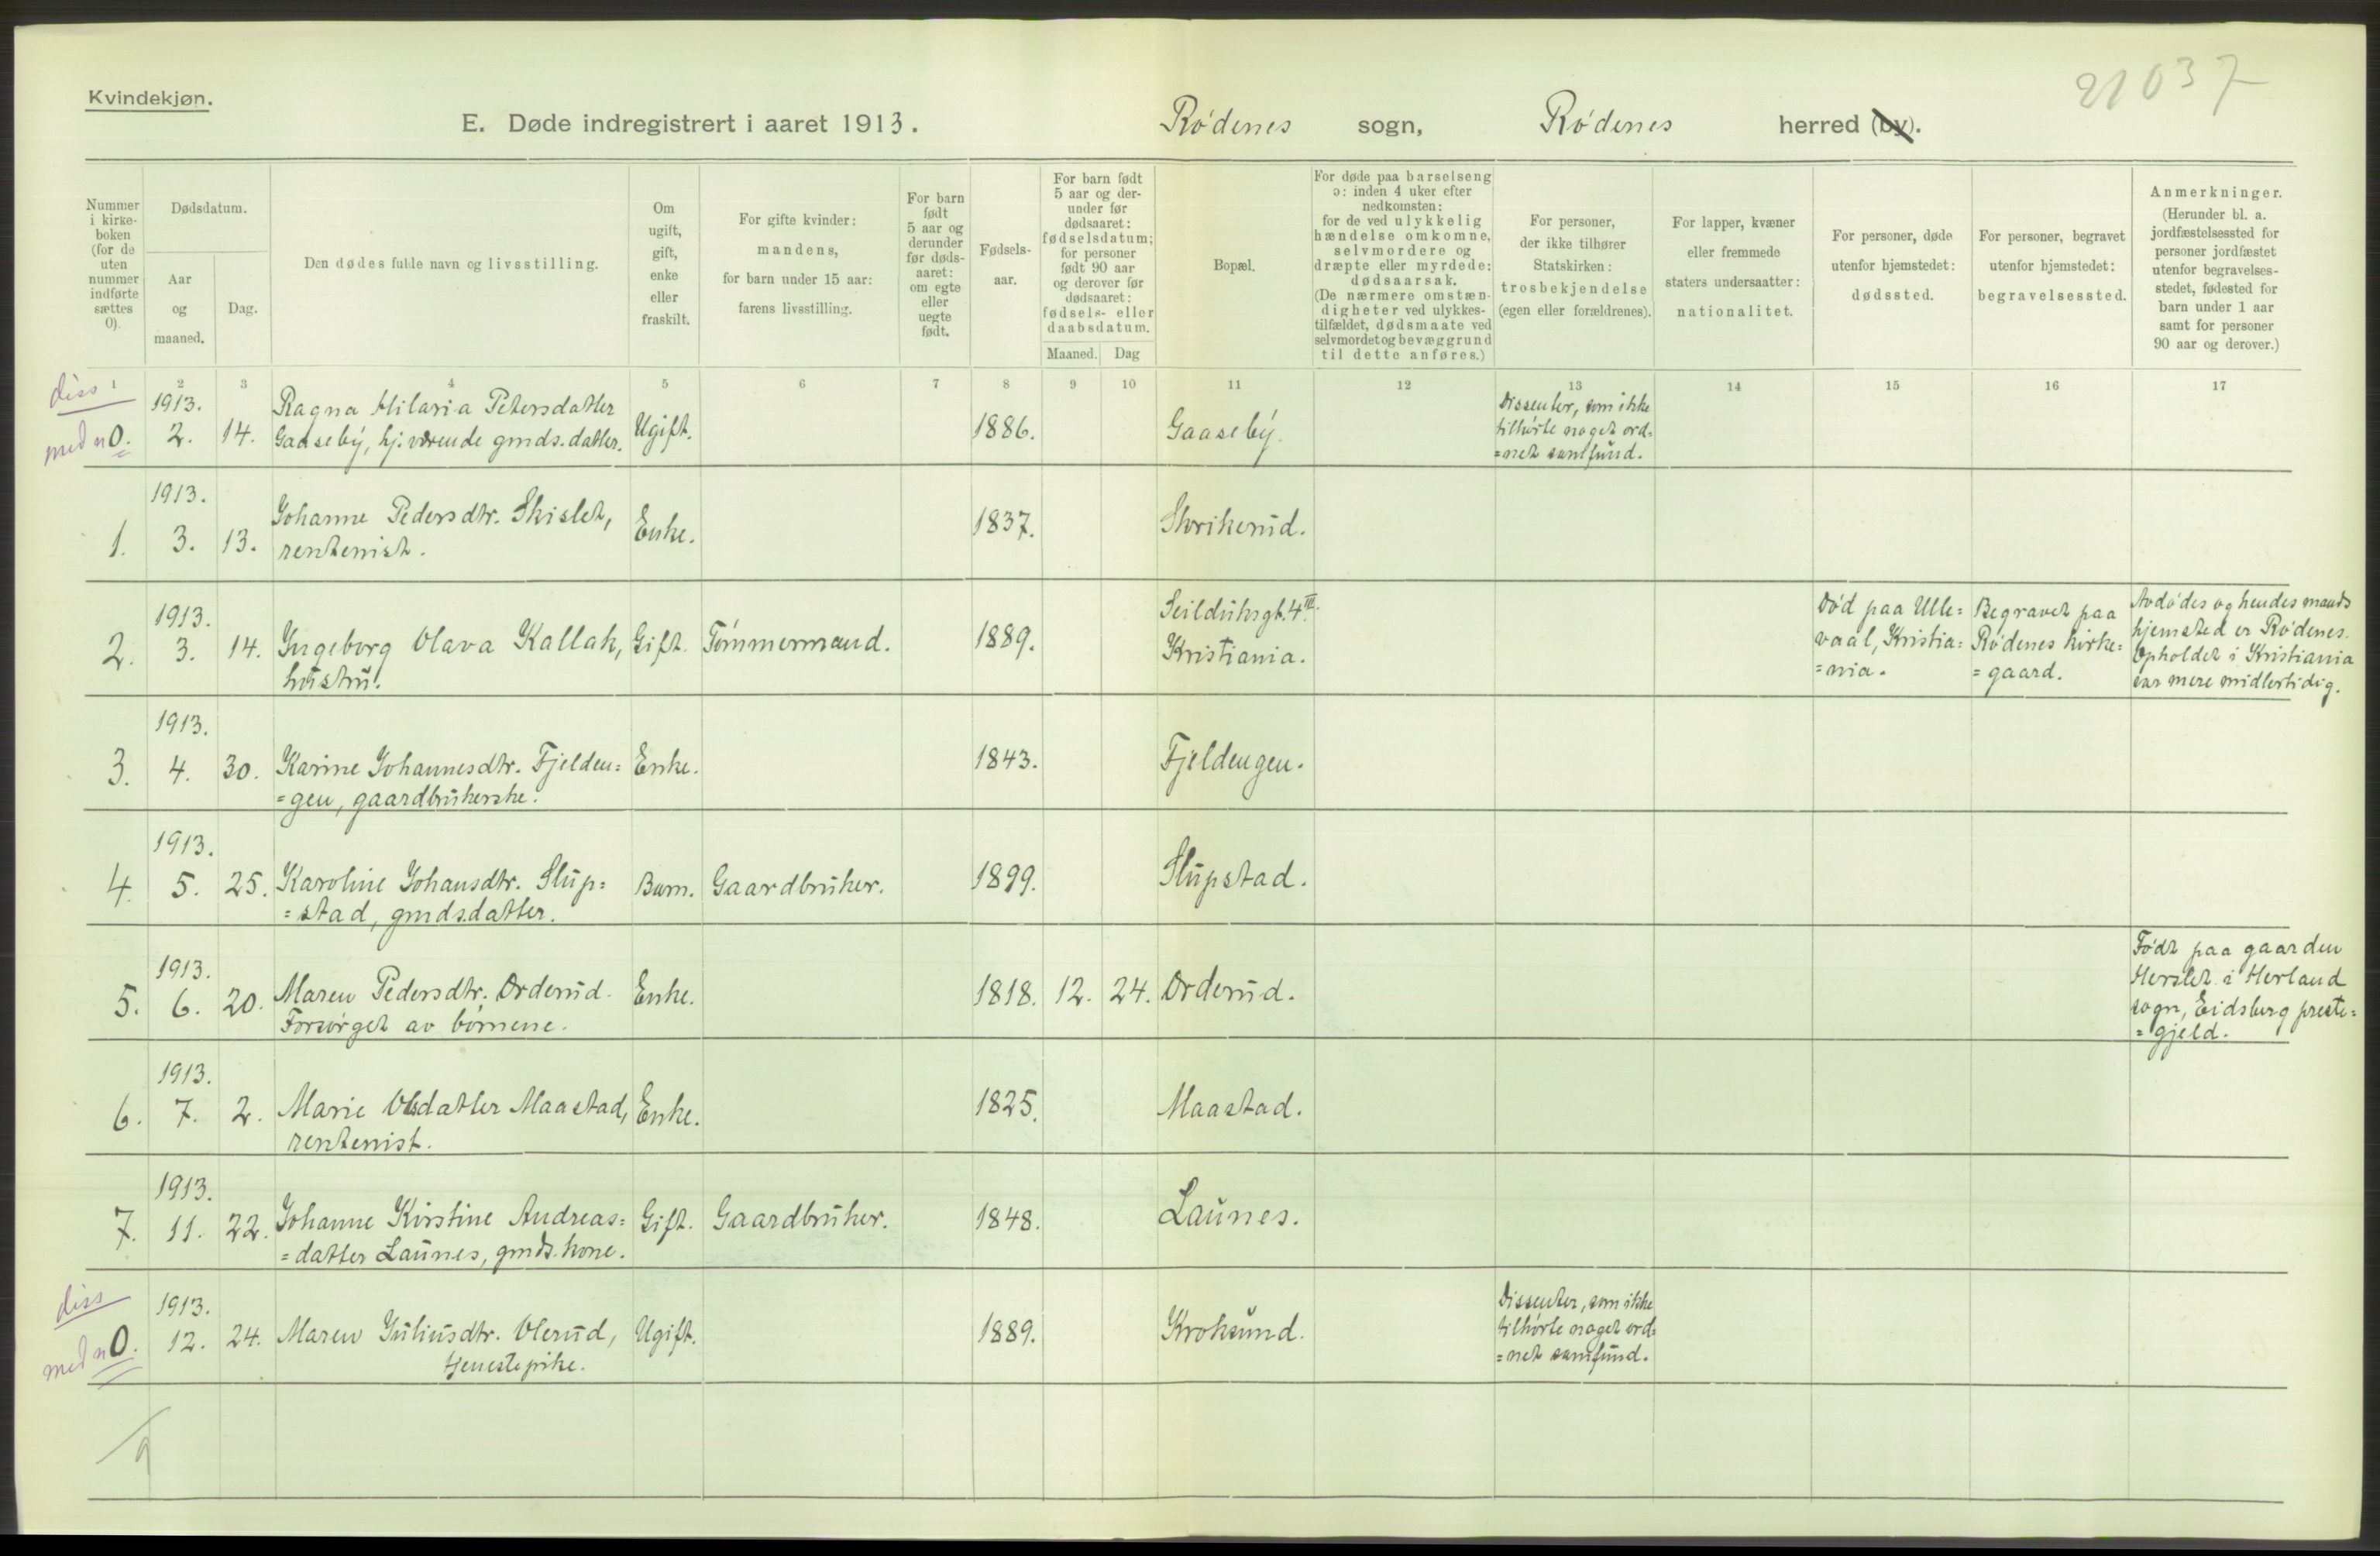 21037
Kvindekjøn.
E. Døde indregistrert i aaret 1913. Rødenes sogn, Rødenes herred (by).
Nummer i kirke-boken (for de uten nummer indførte sættes 0).
Dødsdatum.
Aar og maaned.
Dag.
Den dødes fulde navn og livsstilling.
Om ugift, gift, enke eller fraskilt.
For gifte kvinder: mandens, for barn under 15 aar: farens livsstilling.
For barn født 5 aar og derunder før døds-aaret: om egte eller uegte født.
Fødsels-aar.
For barn født 5 aar og der-under før dødsaaret: fødselsdatum; for personer født 90 aar og derover før dødsaaret: fødsels- eller daabsdatum.
Maaned. Dag
Bopæl.
For døde paa barselseng ɔ: inden 4 uker efter nedkomsten: for de ved ulykkelig hændelse omkomne, selvmordere og dræpte eller myrdede: dødsaarsak. (De nærmere omstæn-digheter ved ulykkes-tilfældet, dødsmaate ved selvmordet og bevæggrund til dette anføres.)
For personer, der ikke tilhører Statskirken: trosbekjendelse (egen eller forældrenes).
For lapper, kvæner eller fremmede staters undersaatter: nationalitet.
For personer, døde utenfor hjemstedet: dødssted.
For personer, begravet utenfor hjemstedet: begravelsessted.
Anmerkninger. (Herunder bl. a. jordfæstelsessted for personer jordfæstet utenfor begravelses-stedet, fødested for barn under 1 aar samt for personer 90 aar og derover.)
1 2 3 4 5 6 7 8 9 10 11 12 13 14 15 16 17
diss
med n
0. 1913. 2. 14. Ragna Hilaria Petersdatter
Gaaseby, hj. værende gmds. datter. Ugift. 1886. Gaaseby. Dissenter, som ikke
tilhørte noget ord=
=net samfund.
1. 1913. 3. 13. Johanne Pedersdtr. Skislet,
rentenist. Enke. 1837. Skrikerud.
2. 1913. 3. 14. Ingeborg Olava Kallak,
hustru. Gift. Tømmermand. 1889. Seilduksgt. 4 III.
Kristiania. Død paa Ulle=
vaal, Kristia=
=nia. Begravet paa
Rødenes kirke=
=gaard. Avdødes og hendes mands
hjemsted er Rødenes.
Opholdet i Kristiania
var mere midlertidig.
3. 1913. 4. 30. Karine Johannesdtr. Fjelden=
=gen, gaardbrukerske. Enke. 1843. Fjeldengen.
4. 1913. 5. 25. Karoline Johansdtr. Slup=
=stad, gmds.datter. Barn. Gaardbruker. 1899. Slupstad.
5. 1913. 6. 20. Maren Pedersdtr. Orderud.
Forsørget av børnene. Enke. 1818. 12. 24. Orderud. Født paa gaarden
Herslet i Herland
sogn, Eidsberg preste=
=gjeld.
6. 1913. 7. 2. Marie Olsdatter Maastad,
rentenist. Enke. 1825. Maastad.
7. 1913. 11. 22. Johanne Kirstine Andreas=
=datter Launes, gmds. kone. Gift. Gaardbruker. 1848. Launes.
diss
med n
0. 1913. 12. 24. Maren Juliusdtr. Olerud,
tjenestepike. Ugift. 1889. Kroksund. Dissenter, som ikke
tilhørte noget ord=
=net samfund.
9